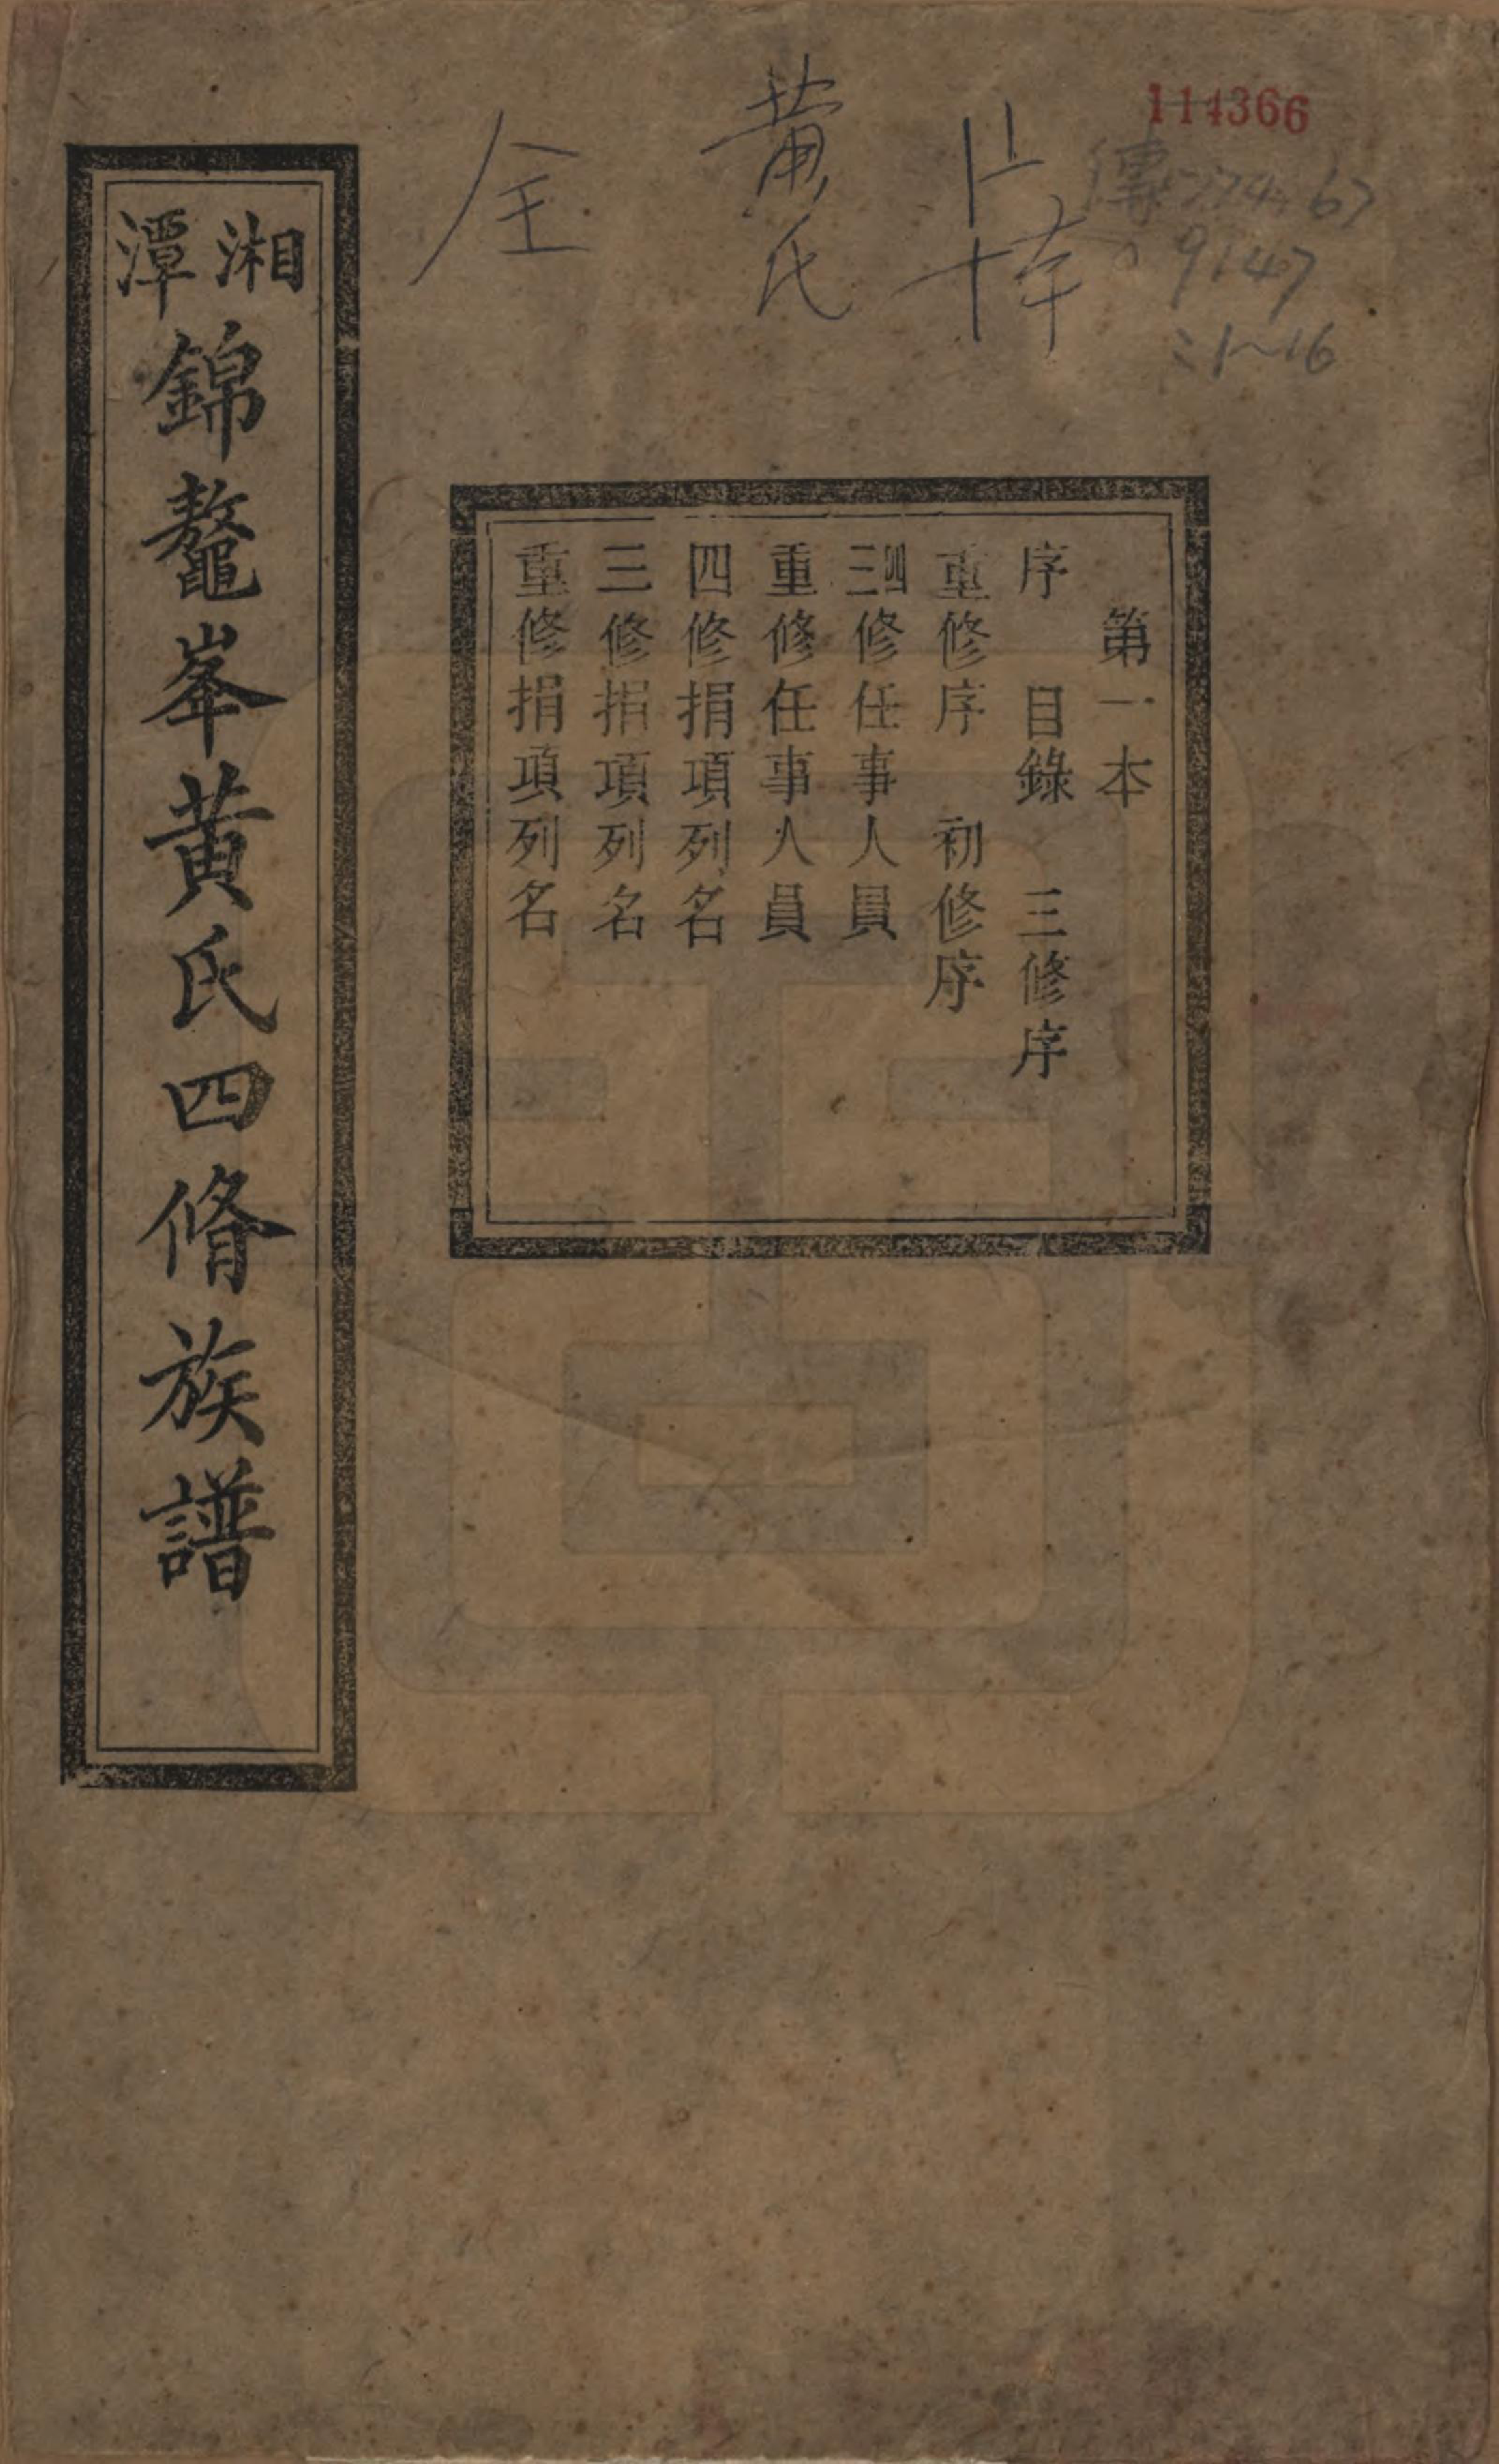 114366
傳774.67
9147
:1~16
黄氏
全
第一本
序 目錄 三修序
重修序 初修序
三四修任事人員
重修任事人員
四修捐項列名
三修捐項列名
重修捐項列名
湘潭錦鼇峯黄氏四脩族譜